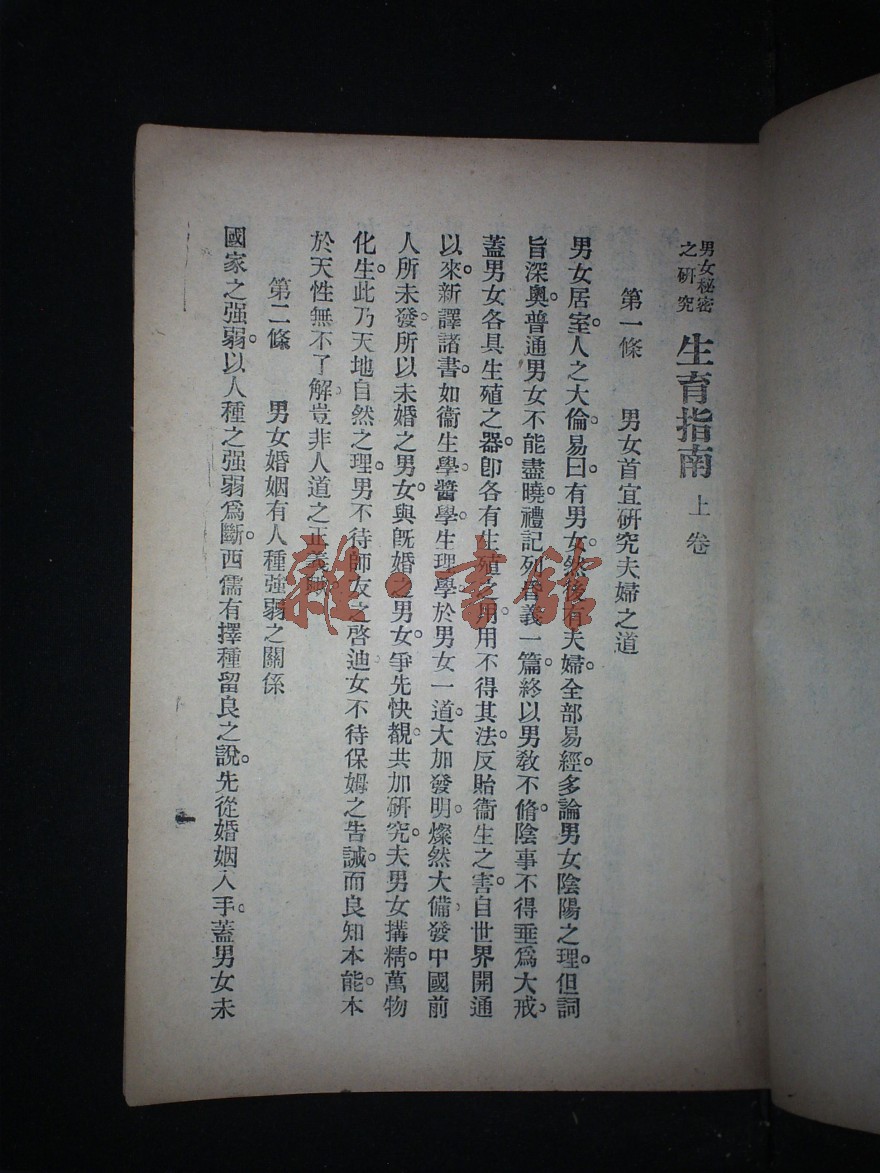 男女秘密之研究 生育指南 上卷
第一條 男女首宜研究夫婦之道
男女居室。人之大倫。易曰。有男女。然後有夫婦。全部易經。多論男女陰陽之理。但詞
旨深奧。普通男女不能盡曉。禮記列昏義一篇。終以男敎不脩。陰事不得。垂爲大戒。
蓋男女各具生殖之器。卽各有生殖之用。用不得其法。反貽衞生之害。自世界開通
以來。新譯諸書。如衞生學。醫學。生理學。於男女一道。大加發明。燦然大備。發中國前
人所未發。所以未婚之男女。與旣婚之男女。爭先快覩。共加硏究。夫男女搆精。萬物
化生。此乃天地自然之理。男不待師友之啓迪。女不待保姆之告誡。而良知本能。本
於天性。無不了解。豈非人道之正義
第二條 男女婚姻有人種强弱之關係
國家之强弱。以人種之强弱爲斷。西儒有擇種留良之說。先從婚姻入手。蓋男女未
雜·書館